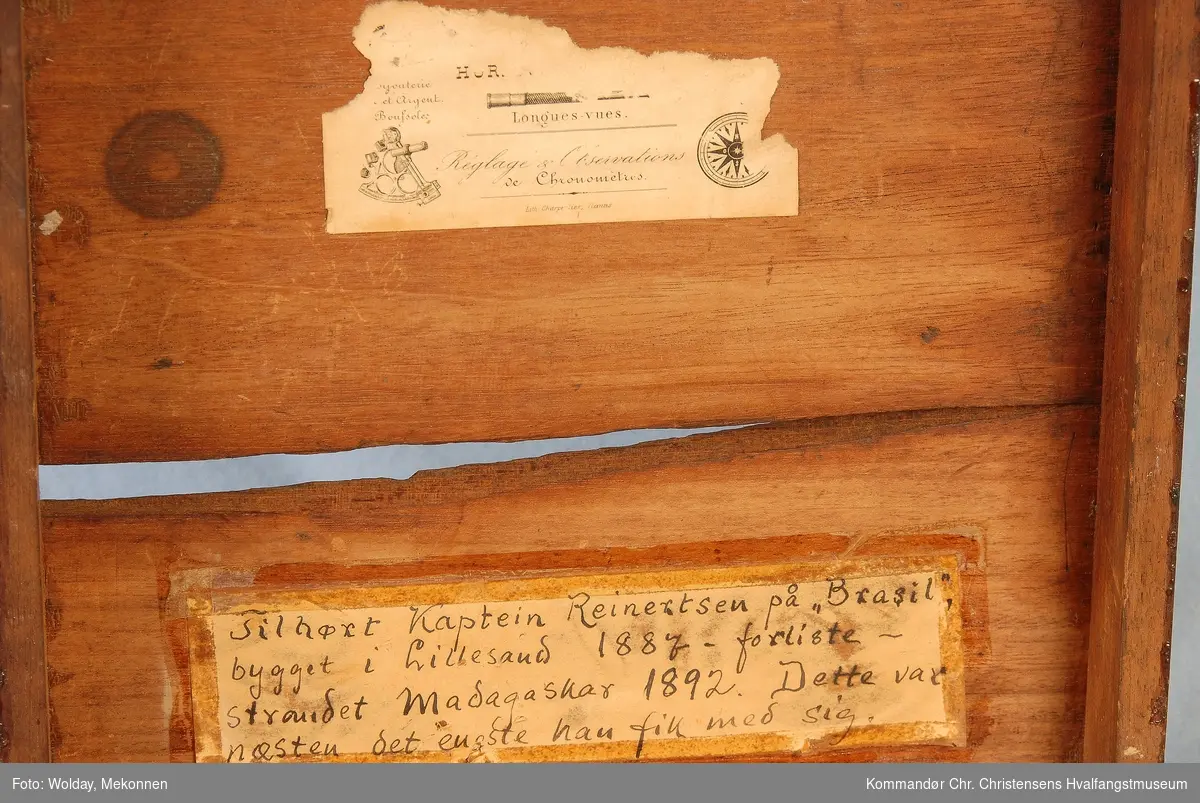 HOR.
et Argent.
Longues-vues.
Réglage & Observations
de Chronomètres.
Tilhørt Kaptein Reinertsen på „Brasil",
bygget i Lillesand 1887 - forliste -
strandet Madagaskar 1892. Dette var
næsten det eneste han fik med sig.
Foto: Wolday, Mekonnen
Kommandør Chr. Christensens Hvalfangstmuseum